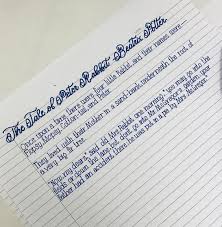 The Tale of Peter Rabbit Beatrix Potter
Once upon a time there were four little Rabbits, and their names were—
Flopsy, Mopsy, Cotton-tail, and Peter.
They lived with their Mother in a sand-bank, underneath the root of
a very big fir tree.
"Now, my dears," said old Mrs. Rabbit one morning, "you may go into the
fields or down the lane, but don't go into Mr. McGregor's garden: your
Father had an accident there; he was put in a pie by Mrs. McGregor."